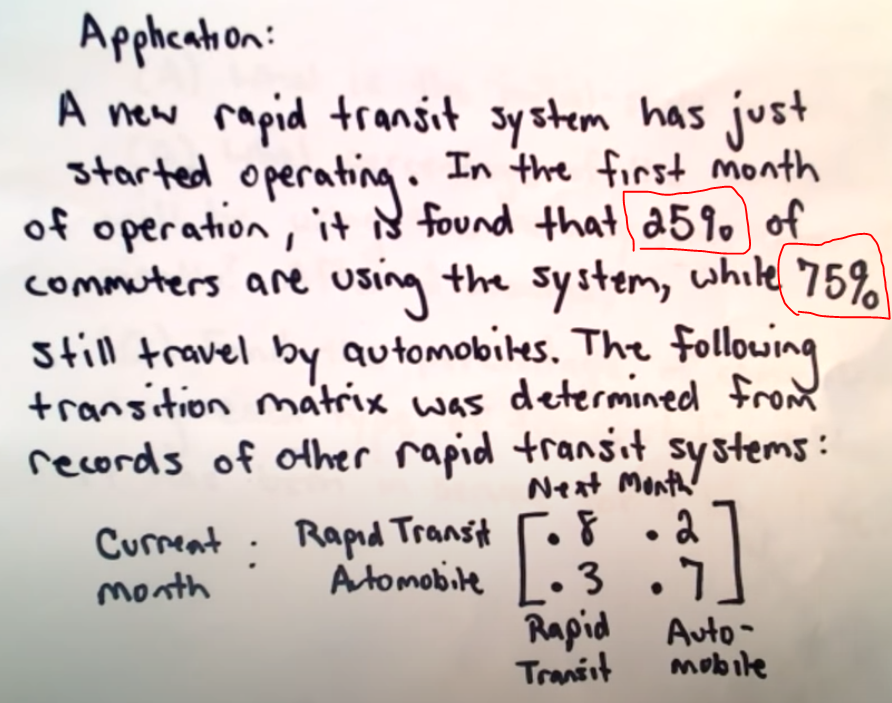 Application:
A new rapid transit system has just
started operating. In the first month
of operation, it is found that 25% of
commuters are using the system, while 75%
still travel by automobiles. The following
transition matrix was determined from
records of other rapid transit systems:
Next Month
Current : Rapid Transit [.8 .2]
month Automobile [.3 .7]
Rapid Auto-
Transit mobile